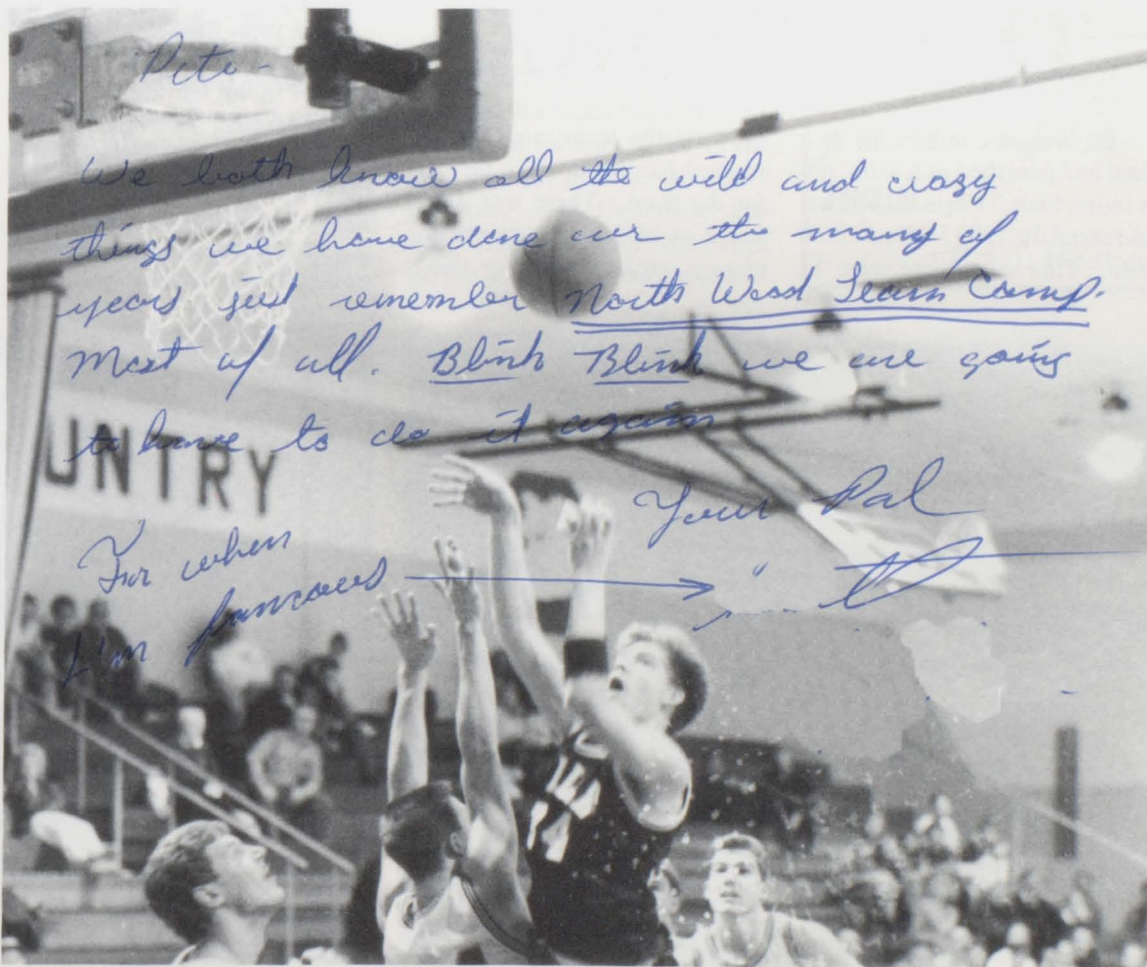 Pete-
We both know all the wild and crazy
things we have done over the many of
years just remember North Wood Team Camp.
Most of all. Blink Blink we are going
to have to do it again
UNTRY
Your Pal
For when
I'm famous